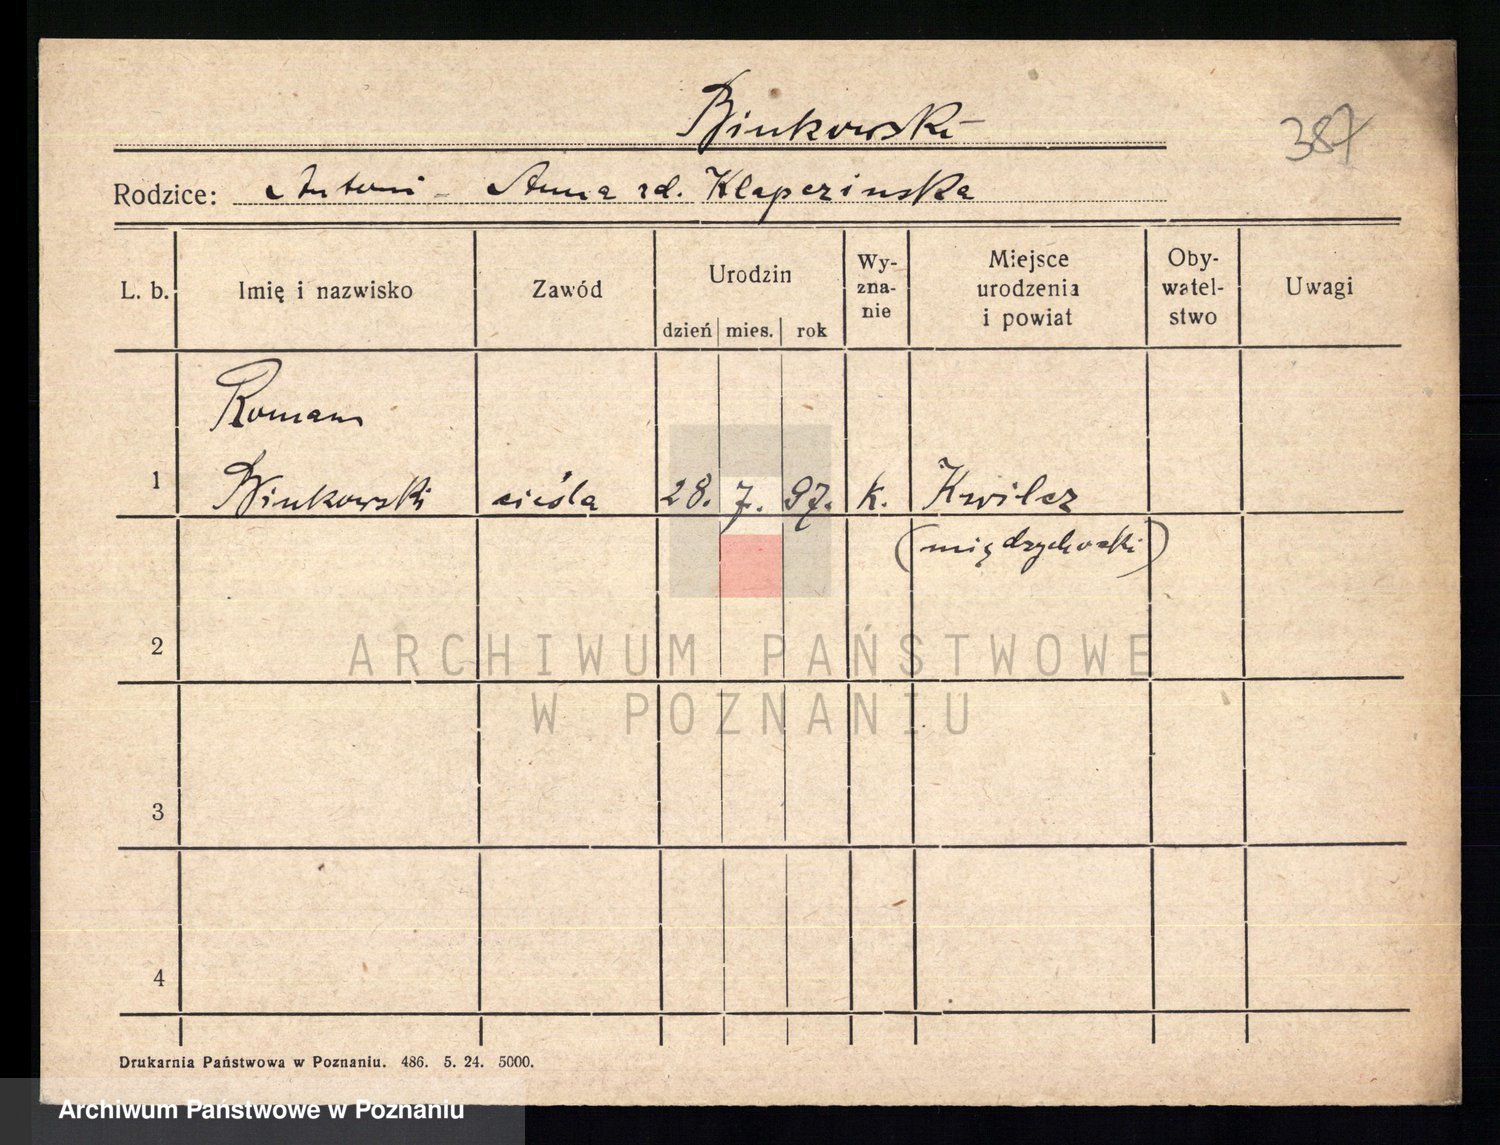 Binkowski
387
Rodzice: Antoni - Anna zd. Klaperinska
L. b. Imię i nazwisko Zawód Urodzin dzień mies. rok Wy-zna-nie Miejsce urodzenia i powiat Oby-watel-stwo Uwagi
Roman
1 Binkowski cieśla 28. 7. 97. k. Kwilcz
(międzychodzki)
2
ARCHIWUM PAŃSTWOWE
W POZNANIU
3
4
Drukarnia Państwowa w Poznaniu. 486. 5. 24. 5000.
Archiwum Państwowe w Poznaniu